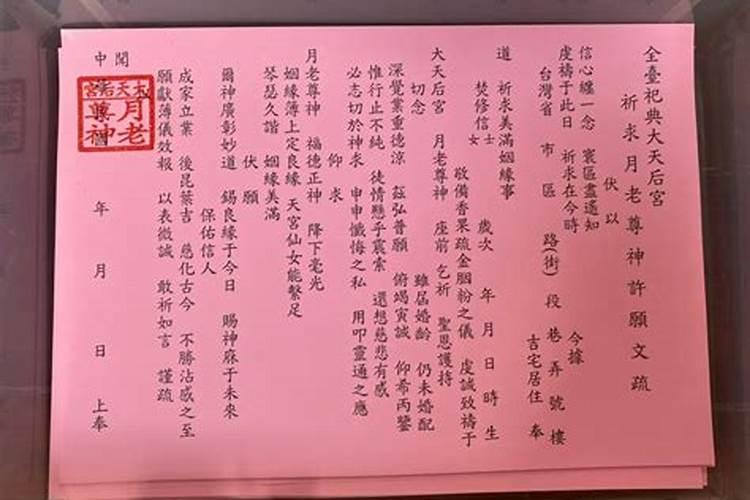 全臺祀典大天后宮
祈求月老尊神許願文疏
伏以
信心纔一念 寰區盡遙知
虔禱于此日 祈求在今時
今據
台灣省 市 區 路(街) 段 巷 弄 號 樓
吉宅居住 奉
道 祈求美滿姻緣事
焚修信士女 歲次 年 月 日 時 生
敬備香果疏金胭粉之儀 虔誠致禱于
大天后宮 月老尊神 座前 乞祈 聖恩護持
切念 雖屆婚齡 仍未婚配
深覺業重德涼 茲弘普願 俯竭寅誠 仰希丙鑒
惟行止不純 徒情懸乎震索 還想慈悲有感
必志切於神求 申申懺悔之私 用叩靈通之應
仰求
月老尊神 福德正神 降下毫光
姻緣簿上定良緣 天宮仙女能繫足
琴瑟久諧 姻緣美滿
伏願
爾神廣彰妙道 錫良緣于今日 賜神庥于未來
保佑信人
成家立業 後昆葉吉 慈化古今 不勝沾感之至
願獻薄儀效報 以表微誠 敢祈如言 謹疏
大天后宮
月老
尊神
中 年 月 日 上奉
聞